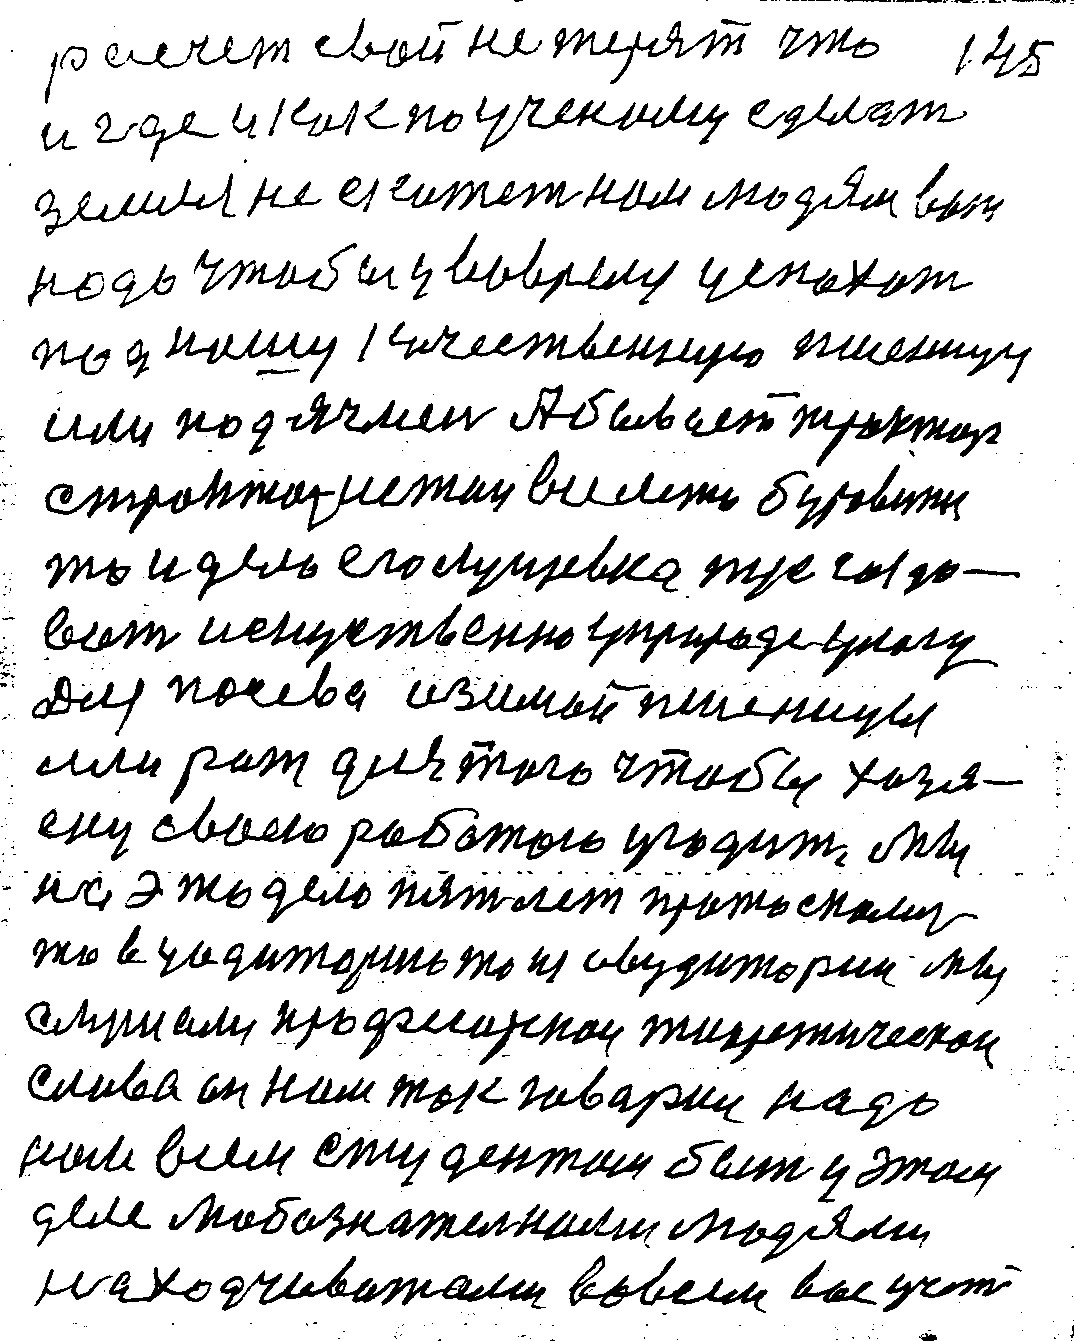 расчет свой не терят что 145
и где и как по ученому сделат
земля не скажет нам людям вот
надо чтобы увовремя успахат
под нашу качественную пшеницу
или под ячмен А бывает трактар
с трактористам вместе
то и дело его лущевка тже содо-
ват искуственно уприроде улагу
Для посева изимой пшеницы
или рож для того чтобы хазя-
ену своею работаю угодит. Мы
на это дело пят лет протоскали
то в удиторию то из авудитории Мы
слушали профисорской тиоретической
слова он нам так говарил надо
нам всем студентам быт у этом
деле любознателнами людями
находчиватами вовсем вас учет